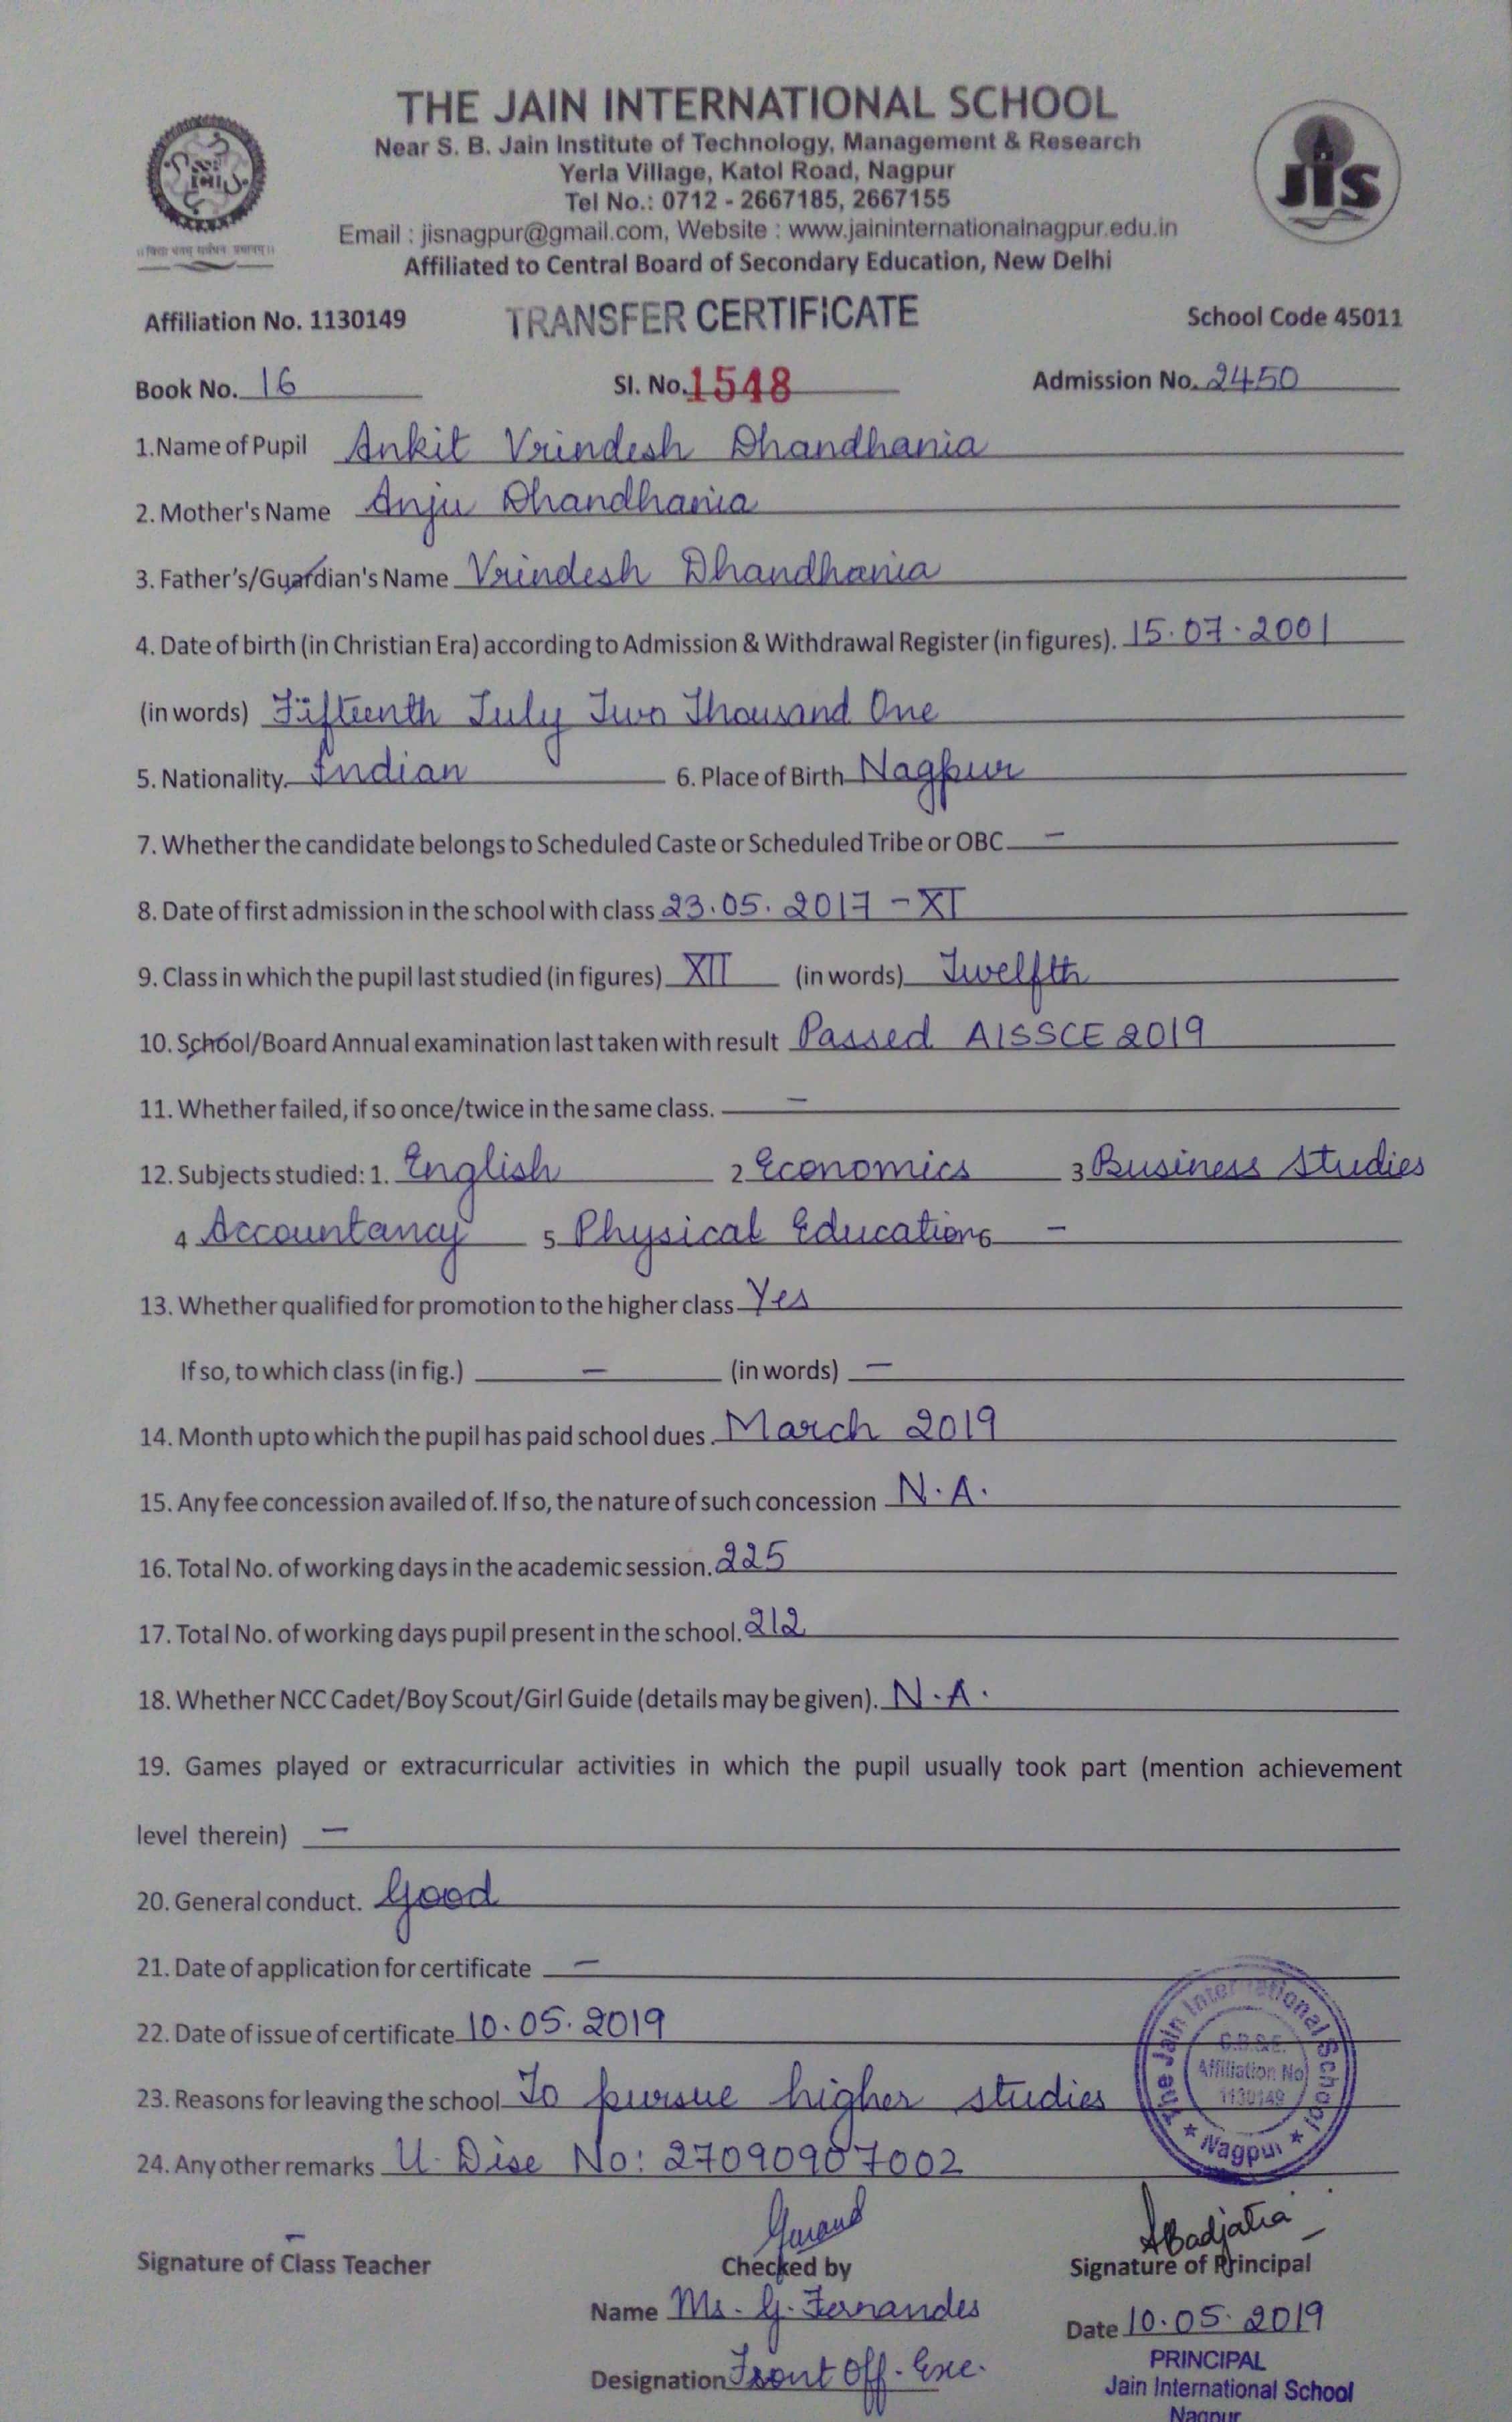 THE JAIN INTERNATIONAL SCHOOL
Near S. B. Jain Institute of Technology, Management & Research
Yerla Village, Katol Road, Nagpur
Tel No.: 0712 - 2667185, 2667155
Email : jisnagpur@gmail.com, Website : www.jaininternationalnagpur.edu.in
Affiliated to Central Board of Secondary Education, New Delhi
jis
Affiliation No. 1130149 TRANSFER CERTIFICATE School Code 45011
Book No. 16 Sl. No. 1548 Admission No. 2450
1.Name of Pupil Ankit Vrindesh Dhandhania
2. Mother's Name Anju Dhandhania
3. Father's/Guardian's Name Vrindesh Dhandhania
4. Date of birth (in Christian Era) according to Admission & Withdrawal Register (in figures). 15.07.2001
(in words) Fifteenth July Two Thousand One
5. Nationality. Indian 6. Place of Birth Nagpur
7. Whether the candidate belongs to Scheduled Caste or Scheduled Tribe or OBC. –
8. Date of first admission in the school with class 23.05.2017 - XI
9. Class in which the pupil last studied (in figures) XII (in words) Twelfth
10. School/Board Annual examination last taken with result Passed AISSCE 2019
11. Whether failed, if so once/twice in the same class. –
12. Subjects studied: 1. English 2 Economics 3 Business Studies
4 Accountancy 5 Physical Education 6 –
13. Whether qualified for promotion to the higher class Yes
If so, to which class (in fig.) – (in words) –
14. Month upto which the pupil has paid school dues. March 2019
15. Any fee concession availed of. If so, the nature of such concession N.A.
16. Total No. of working days in the academic session. 225
17. Total No. of working days pupil present in the school. 212
18. Whether NCC Cadet/Boy Scout/Girl Guide (details may be given). N.A.
19. Games played or extracurricular activities in which the pupil usually took part (mention achievement
level therein) –
20. General conduct. Good
21. Date of application for certificate –
22. Date of issue of certificate 10.05.2019
23. Reasons for leaving the school To pursue higher studies
24. Any other remarks U. Dise No: 27090907002
The Jain International School
C.B.S.E.
Affiliation No
1130149
★ Nagpur ★
ABadjatia
Signature of Class Teacher – Checked by Signature of Principal
Name Ms. G. Fernandes Date 10.05.2019
Designation Front Off. Exe.
PRINCIPAL
Jain International School
Nagpur